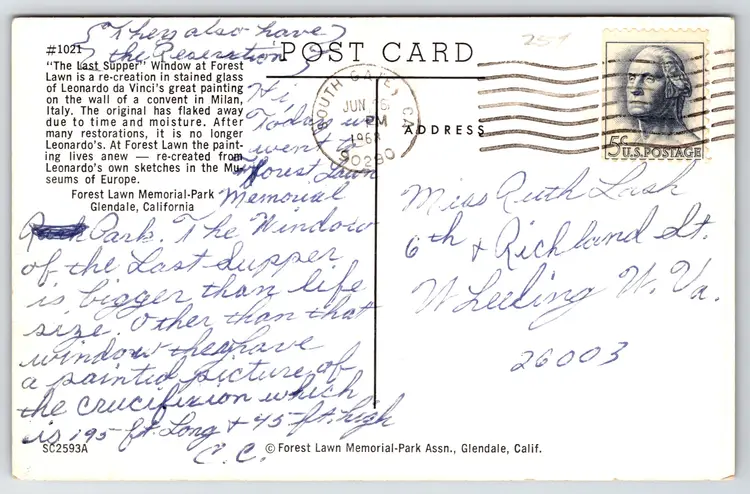 {They also have}
{the Reserrection}
#1021
POST CARD
25¢
"The Last Supper" Window at Forest
Lawn is a re-creation in stained glass
of Leonardo da Vinci's great painting
on the wall of a convent in Milan,
Italy. The original has flaked away
due to time and moisture. After
many restorations, it is no longer
Leonardo's. At Forest Lawn the paint-
ing lives anew — re-created from
Leonardo's own sketches in the Mu-
seums of Europe.
Forest Lawn Memorial-Park
Glendale, California
Hi
Today we
went to
Forest Lawn
Memorial
Park. The Window
of the Last Supper
is bigger than life
size. Other than that
window they have
a painted picture of
the crucifixion which
is 195-ft. Long & 45-ft. high
C. C.
SOUTH GATE, CA
JUN
PM
1968
90280
ADDRESS
5¢ U.S. POSTAGE
Miss Ruth Lash
6th & Richland St.
Wheeling W. Va.
26003
SC2593A
© Forest Lawn Memorial-Park Assn., Glendale, Calif.